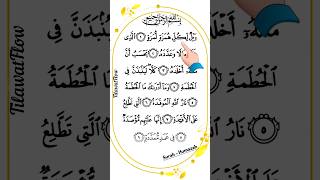 بِسْمِ اللَّهِ الرَّحْمَٰنِ الرَّحِيمِ
وَيْلٌ لِّكُلِّ هُمَزَةٍ لُّمَزَةٍ ١ الَّذِي
وَعَدَّدَهُ ٢ يَحْسَبُ أَنَّ
أَخْلَدَهُ ٣ كَلَّا لَيُنبَذَنَّ فِي
الْحُطَمَةِ ٤ وَمَا أَدْرَاكَ مَا الْحُطَمَةُ
٥ نَارُ اللَّهِ الْمُوقَدَةُ ٦ الَّتِي تَطَّلِعُ
عَلَى الْأَفْئِدَةِ ٧ إِنَّهَا عَلَيْهِم مُّؤْصَدَةٌ
٨ فِي عَمَدٍ مُّمَدَّدَةٍ ٩
Surah - Humazah
TilawatFlow